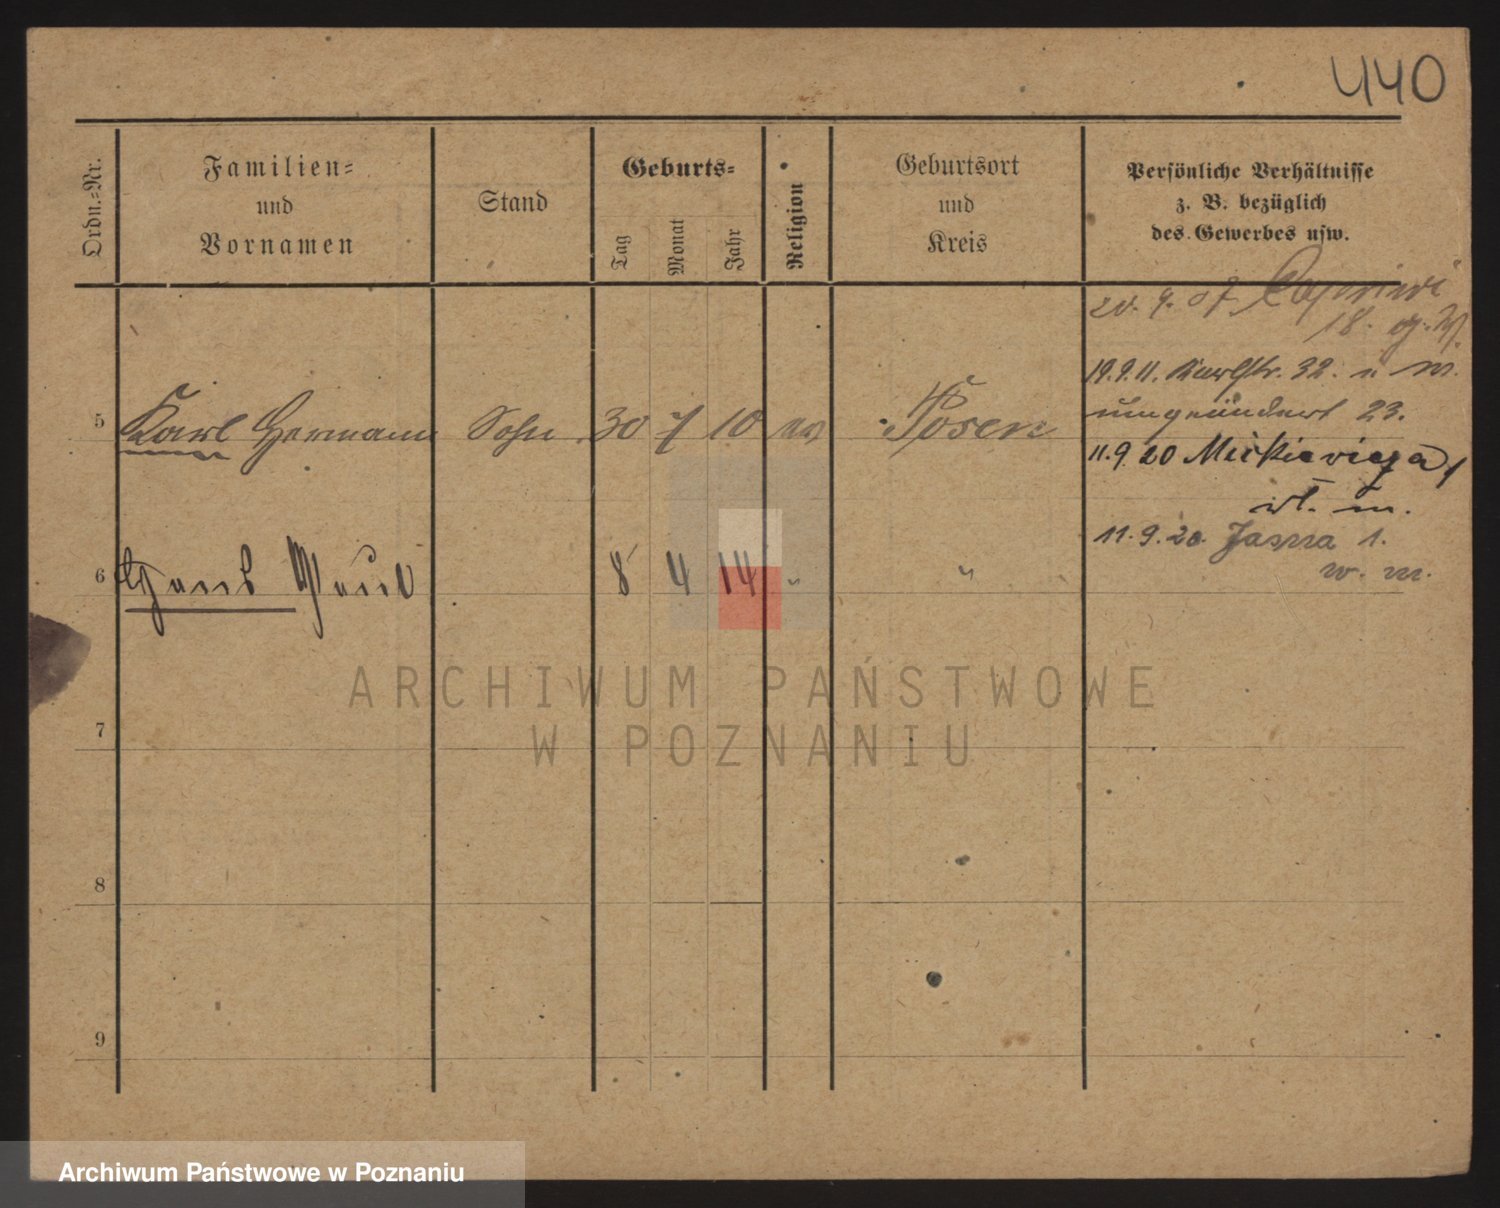 440
Ordn.-Nr.
Familien-
und
Vornamen
Stand
Geburts-
Tag
Monat
Jahr
Religion
Geburtsort
und
Kreis
Persönliche Verhältnisse
z. B. bezüglich
des Gewerbes usw.
20. 9. 07 Caprivi
18.
19.9.11. Karlstr. 32.
5 Karl Hermann Sohn 30 7 10 ev Posen
umgeändert 23.
11.9.20 Mickiewicza
6 Hans Paul 8 4 14 " "
11.9.20 Jasna 1.
w. m.
7
8
9
ARCHIWUM PAŃSTWOWE
W POZNANIU
Archiwum Państwowe w Poznaniu